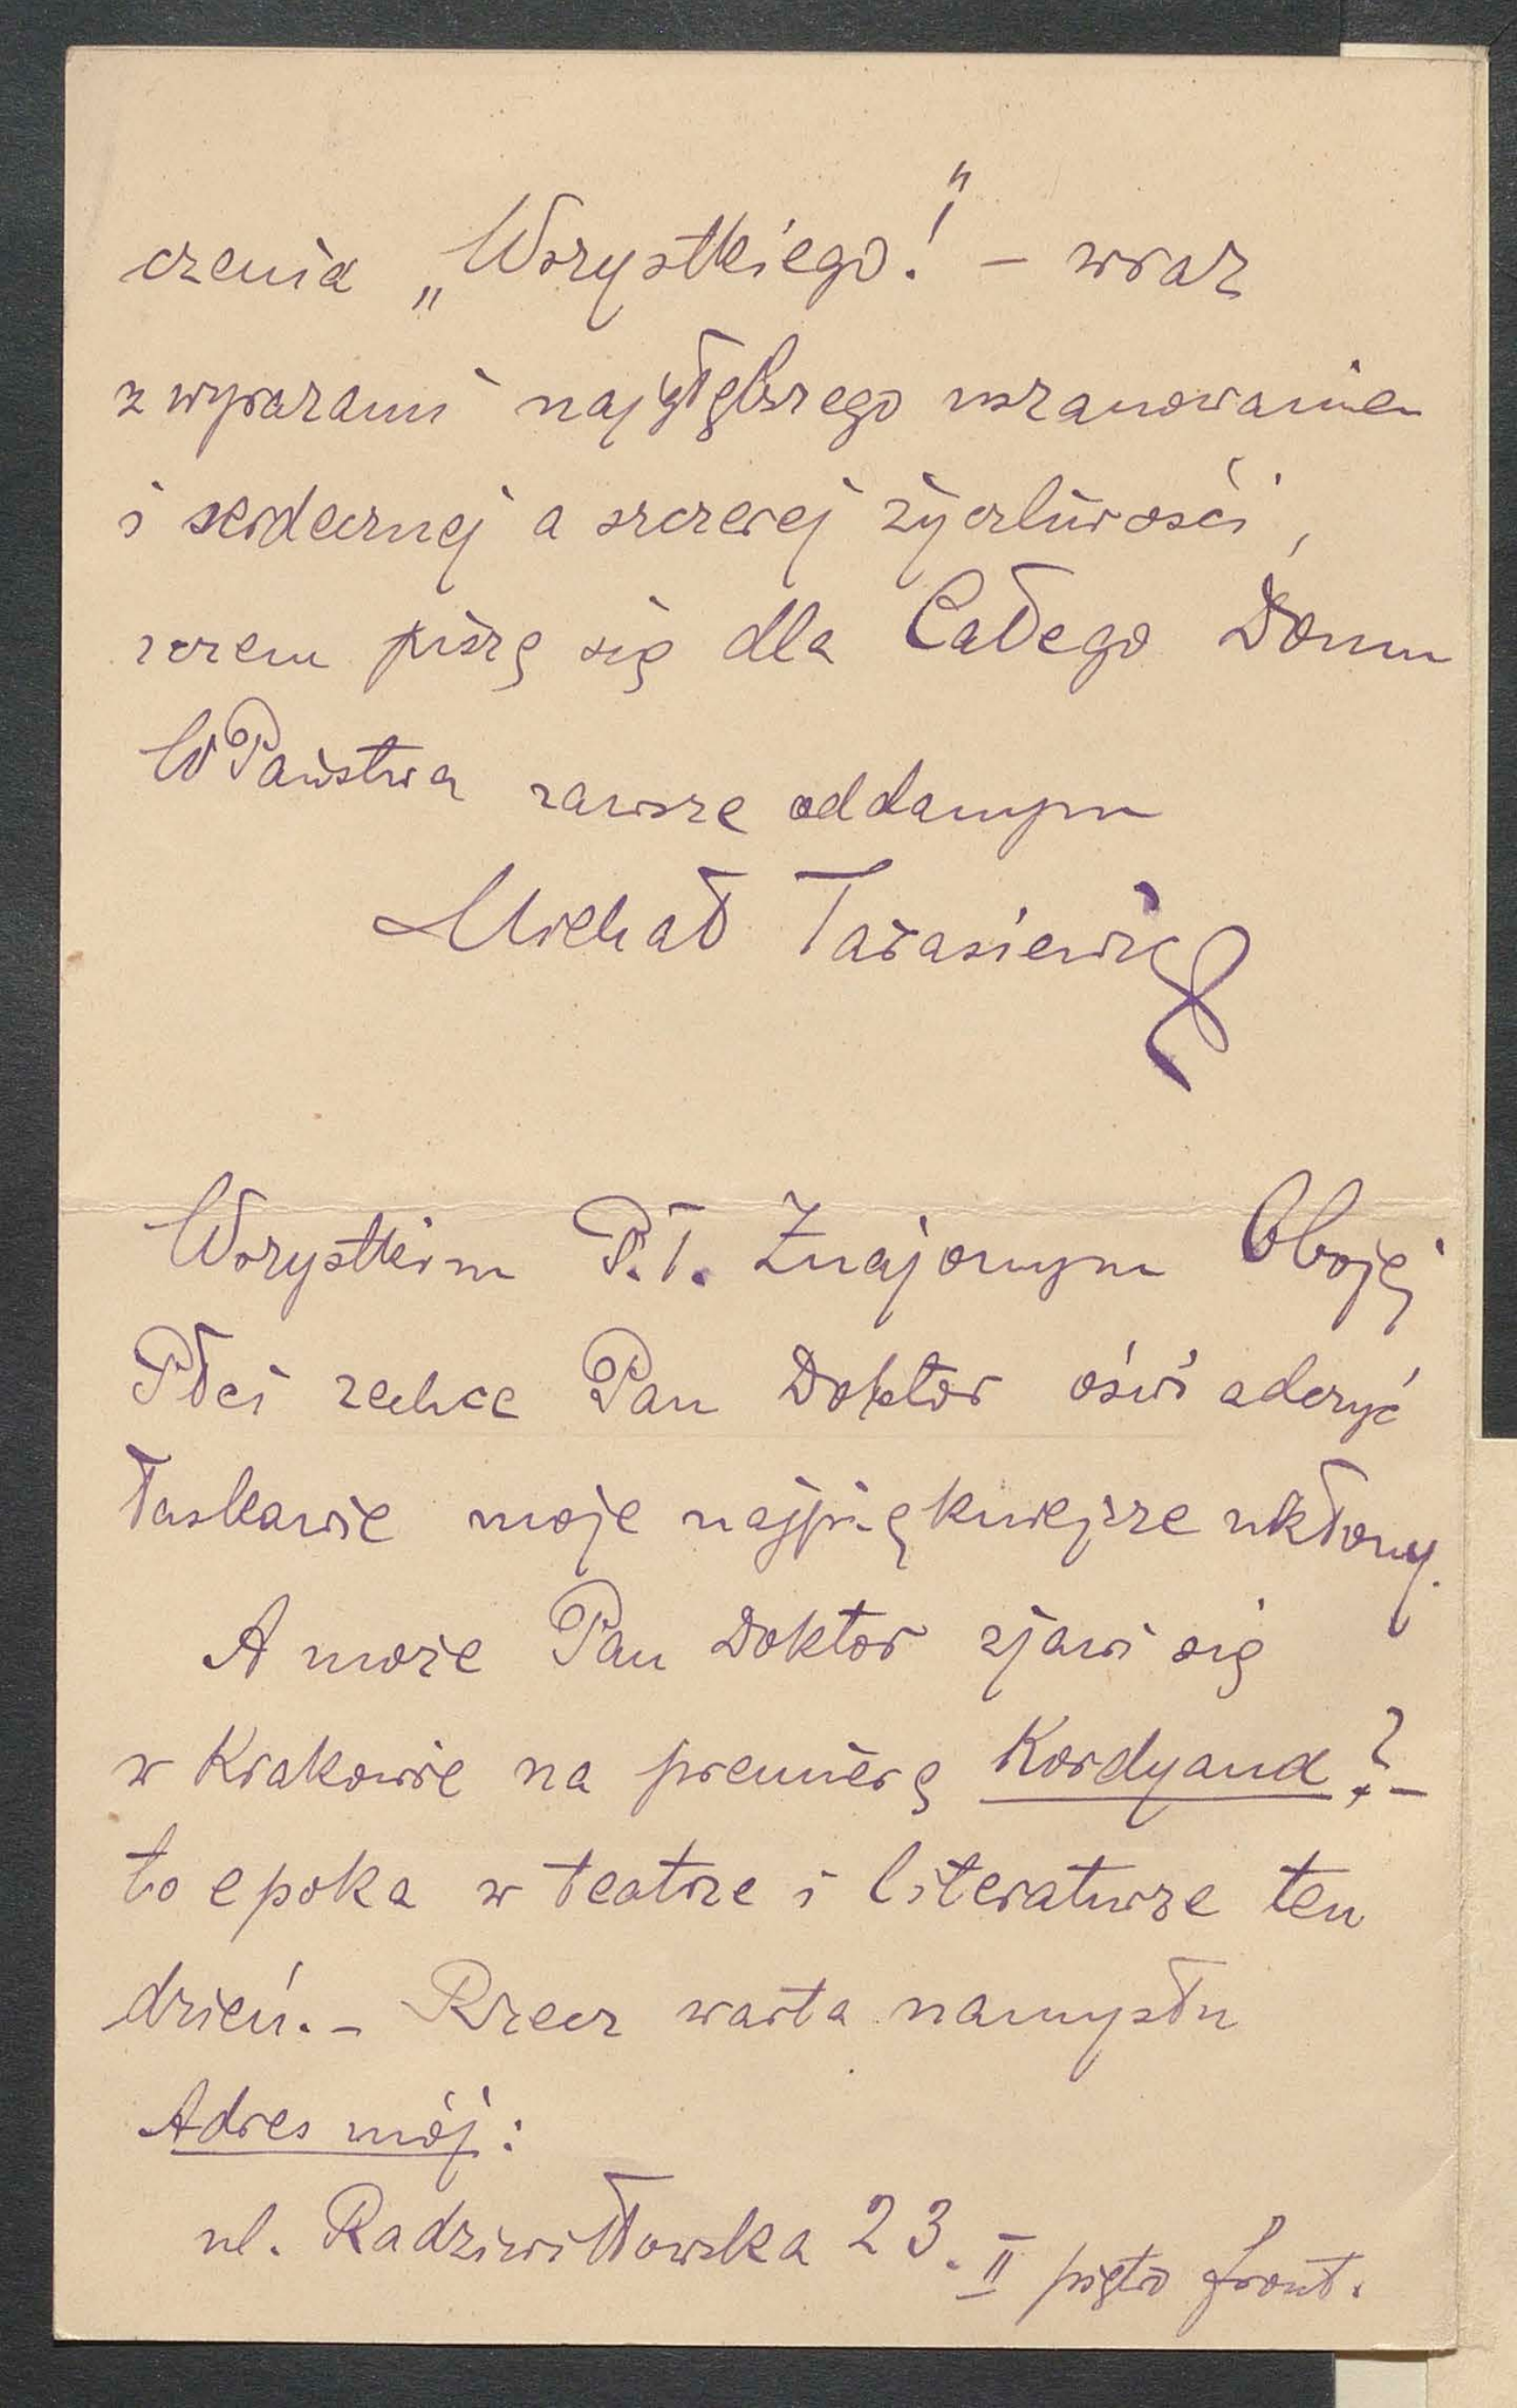 czenia „Wszystkiego!” – wraz
z wyrazami najgłębszego uszanowania
i serdecznej a szczerej życzliwości,
z czem piszę się dla Całego Domu
WPaństwa zawsze oddanym
Michał Tarasiewicz
Wszystkim P.T. Znajomym Obojej
Płci zechce Pan Doktor oświadczyć
łaskawie moje najpiękniejsze ukłony.
A może Pan Doktor zjawi się
w Krakowie na premierę Kordyana? –
to epoka w teatrze i literaturze ten
dzień. – Rzecz warta namysłu
Adres mój:
ul. Radziwiłłowska 23. II piętro front.